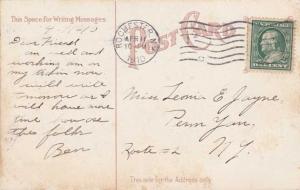 This Space for Writing Messages
POST CARD
ROCHESTER, N.Y.
FEB 11
1910
4-11-10
Dear Friend
am well and
working am on
my
now
I will write
tomorrow as I
will have more
time
folks
Ben
ONE CENT
Miss Leona E. Jayne,
Penn Yan,
Route #2
N.Y.
This side for the Address only